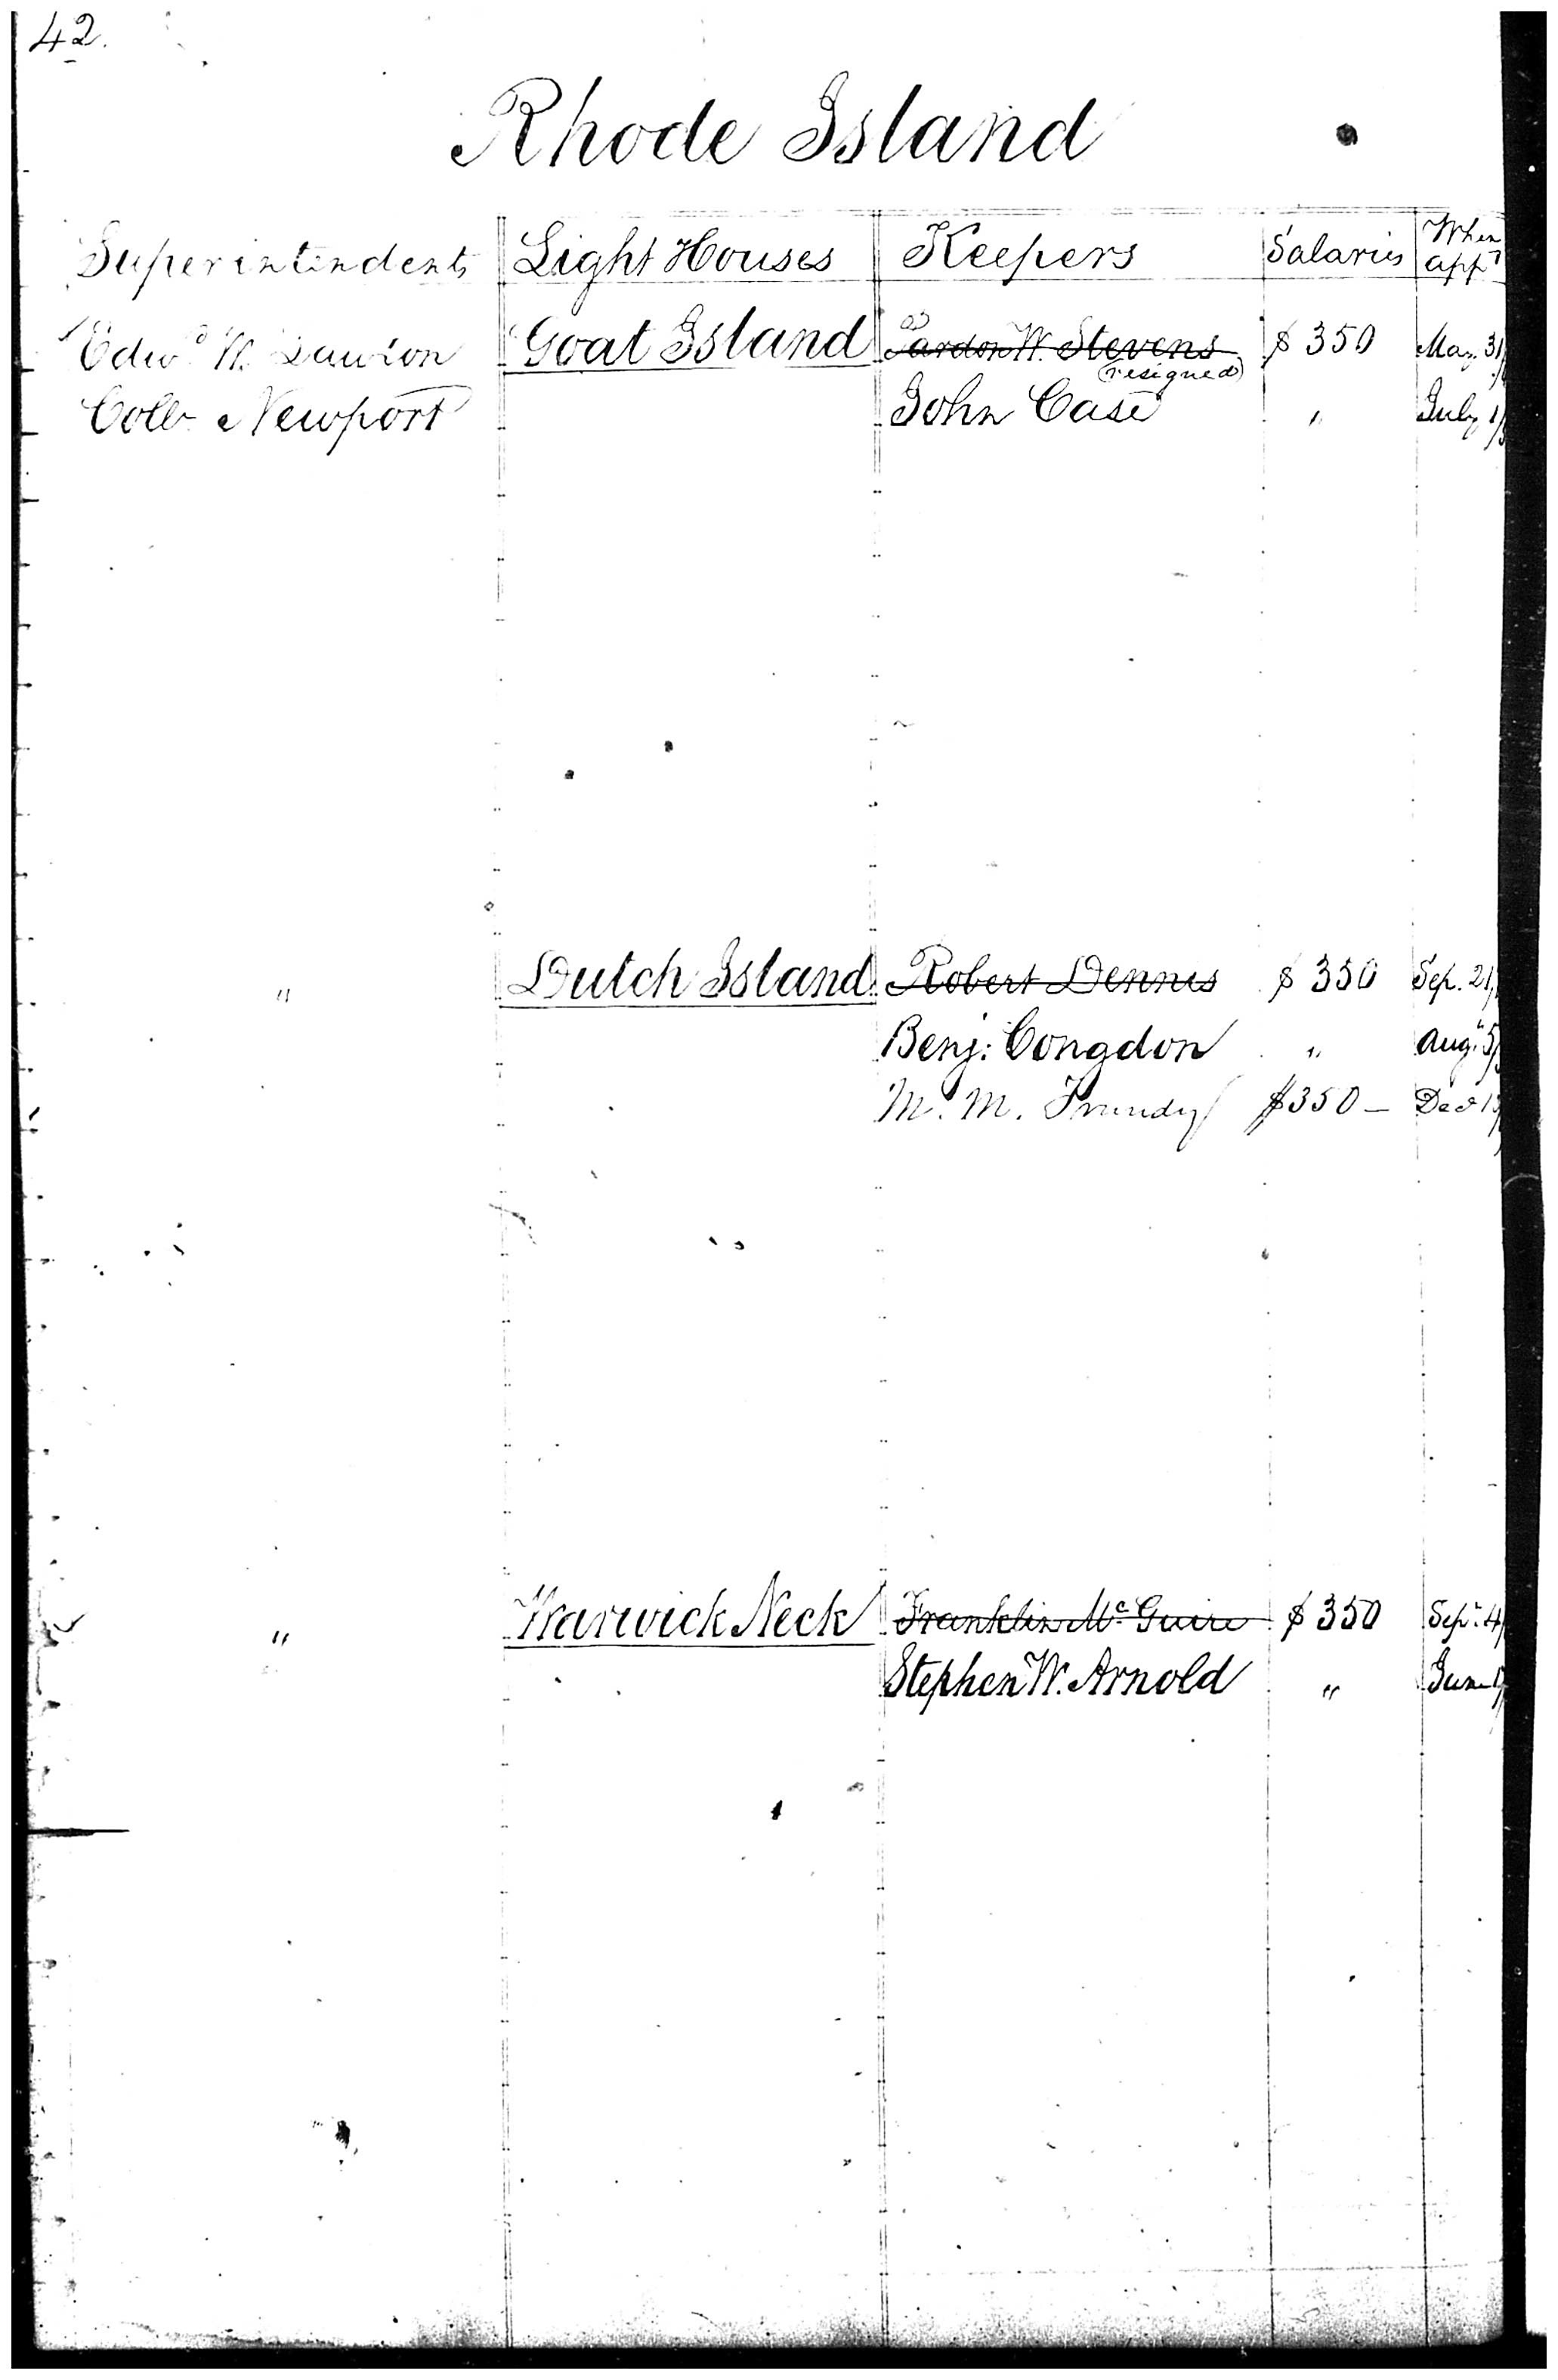 42.
Rhode Island
Superintendents Light Houses Keepers Salaries When app^t
Edw^d W. Lawton Goat Island Pardon W. Stevens $ 350 May. 31
(resigned)
Coll^r Newport John Case " July 1/
" Dutch Island Robert Dennis $ 350 Sep. 21
Benj: Congdon " Aug. 5/
M. M. $350 — Dec^r 1
" Warwick Neck Franklin M^c Guire $ 350 Sep^r. 4
Stephen W. Arnold " June 1